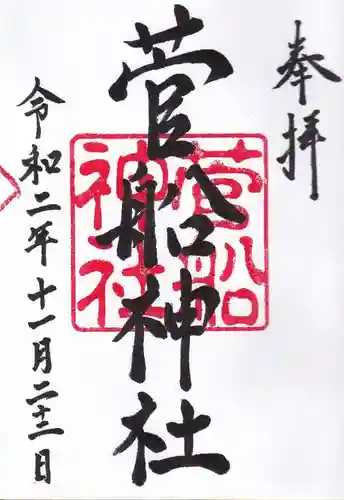 奉拝
菅船神社
菅船
神社
令和二年十一月二十三日